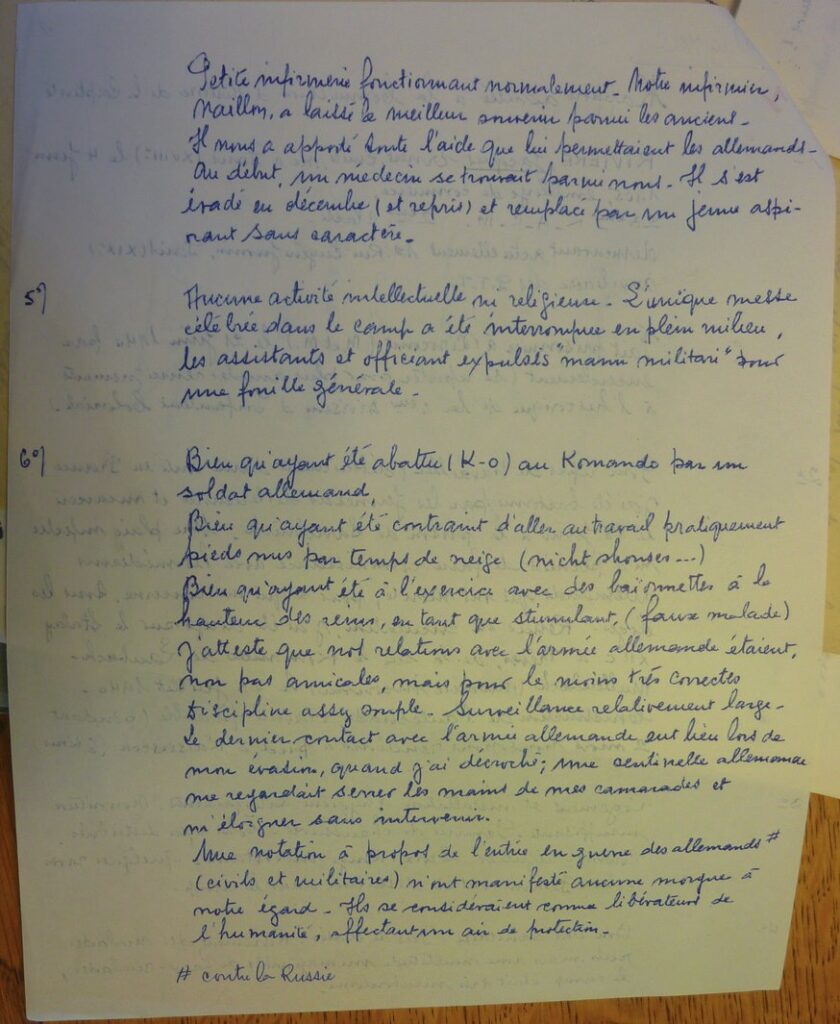 Petite infirmerie fonctionnant normalement - Notre infirmier,
Naillon, a laissé le meilleur souvenir parmi les anciens -
Il nous a apporté toute l'aide que lui permettaient les allemands -
Au début, un médecin se trouvait parmi nous - Il s'est
évadé en décembre (et repris) et remplacé par un jeune aspi-
rant sans caractère -
5°/ Aucune activité intellectuelle ni religieuse - L'unique messe
célébrée dans le camp a été interrompue en plein milieu,
les assistants et officiant expulsés "manu militari" pour
une fouille générale -
6°/ Bien qu'ayant été abattu (K-O) au Komando par un
soldat allemand,
Bien qu'ayant été contraint d'aller au travail pratiquement
pieds nus par temps de neige (nicht shouses ...)
Bien qu'ayant été à l'exercice avec des baïonnettes à la
hauteur des reins, en tant que stimulant, (faux malade)
j'atteste que nos relations avec l'armée allemande étaient,
non pas amicales, mais pour le moins très correctes
Discipline assez souple - Surveillance relativement large -
Le dernier contact avec l'armée allemande eut lieu lors de
mon évasion, quand j'ai décroché; une sentinelle allemande
me regardait serrer les mains de mes camarades et
m'éloigner sans intervenir.
Une notation à propos de l'entrée en guerre des allemands #
(civils et militaires) n'ont manifesté aucune morgue à
notre égard - Ils se considéraient comme libérateurs de
l'humanité, affectant un air de protection -
# contre la Russie